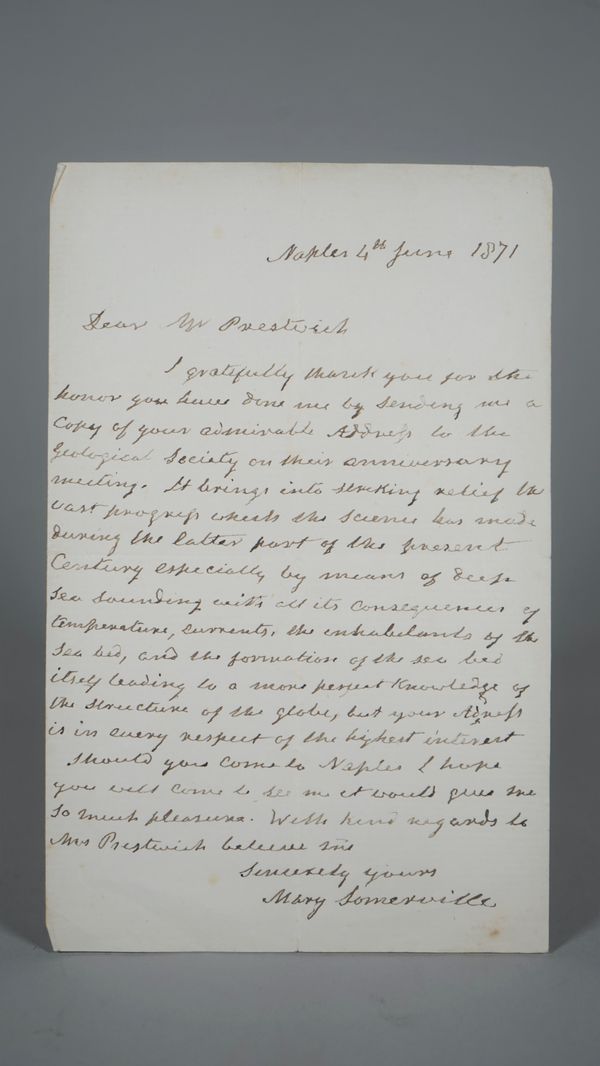 Naples 4th June 1871
Dear Mr Prestwich
I gratefully thank you for the
honor you have done me by sending me a
Copy of your admirable Address to the
Geological Society on their anniversary
meeting. It brings into striking relief the
vast progress which the Science has made
during the latter part of the present
Century especially by means of deep
sea sounding with all its consequences of
temperature, currents, the inhabitants of the
sea bed, and the formation of the sea bed
itself leading to a more perfect knowledge of
the structure of the globe, but your Adress
is in every respect of the highest interest
Should you come to Naples I hope
you will come to see me it would give me
so much pleasure. With kind regards to
Mrs Prestwich believe me
Sincerely yours
Mary Somerville